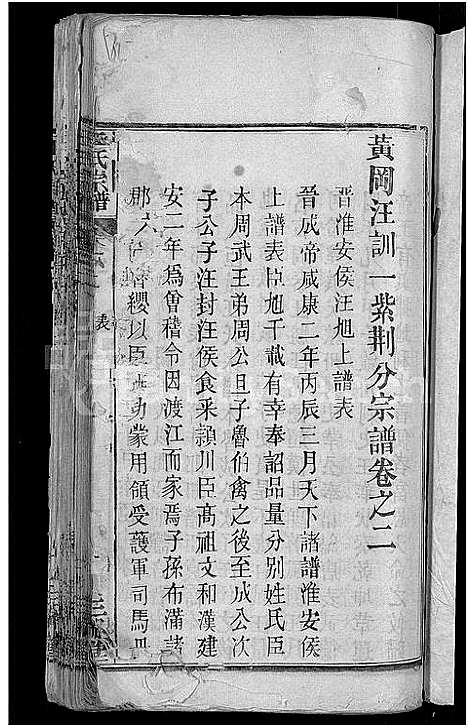 黃岡汪訓一紫荆分宗譜卷之二
晉淮安侯汪旭上譜表
晉成帝咸康二年丙辰三月天下諸譜淮安侯
上譜表臣旭千載有幸奉詔品量分別姓氏臣
本周武王弟周公旦子魯伯禽之後至成公次
子公子汪封汪侯食采潁川臣髙祖文和漢建
安二年爲會稽令因渡江而家焉子孫布滿諸
郡六 纓以臣 功蒙用領受䕶軍司馬丹
氏宗譜
表